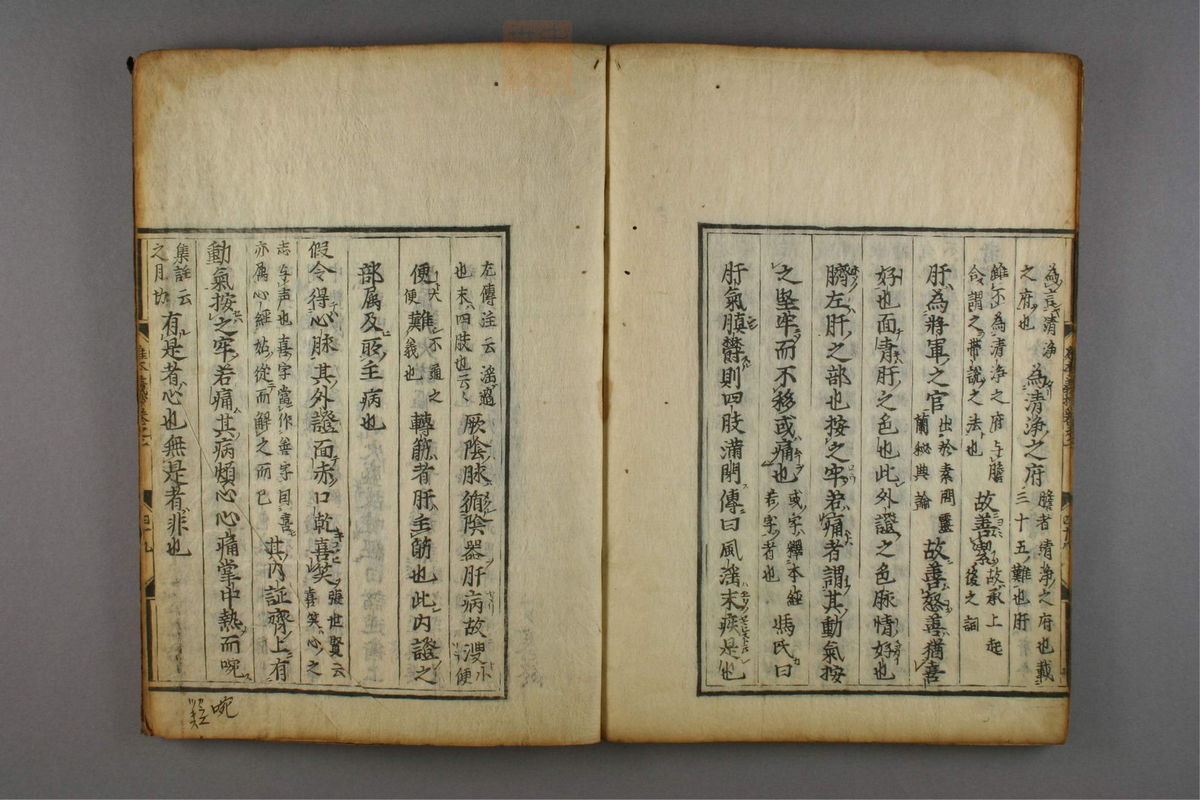 為言清浄
之府也
為清浄之府
膽者清浄之府也載
三十五難也肝
雖不為清浄之府与膽
合謂之帯説之法也
故善潔
故承上起
後之詞
肝為將軍之官
出於素問靈
蘭秘典論
故善怒善猶喜
好也面青肝之色也此外證之色脉情好也
臍左肝之部也按之牢若痛者謂其動氣按
之堅牢而不移或痛也
或字釋本経
若字者也
馮氏曰
肝氣膹欝則四肢滿閉傳曰風滛末疾是也
左傳注云滛
也末四肢也云々
厥陰脉循陰器肝病故溲
小
便
便
大
便
難
不通之
義也
轉筋者肝主筋也此内證之
部属及所主病也
假令得心脉其外證面赤口乾喜笑
張世賢云
喜笑心之
志与声也喜字當作善字因喜
亦属心経姑従而解之而已
其内証臍上有
動氣按之牢若痛其病煩心心痛掌中熱而啘
集註云
之月切
有是者心也無是者非也
啘